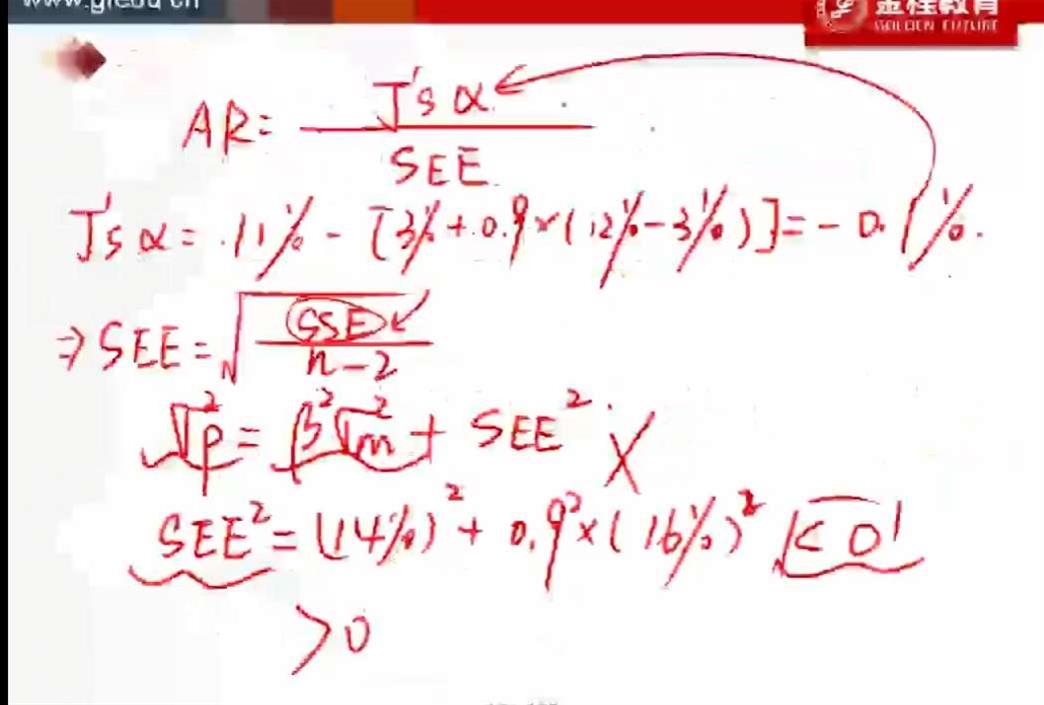 金程教育
GOLDEN FUTURE
AR = J's α / SEE
J's α = 11% - [3% + 0.9 × (12% - 3%)] = - 0.1%.
⇒ SEE = √(SSE / n-2)
σp² = β²σm² + SEE² X
SEE² = (14%)² + 0.9² × (16%)² < 0!
> 0